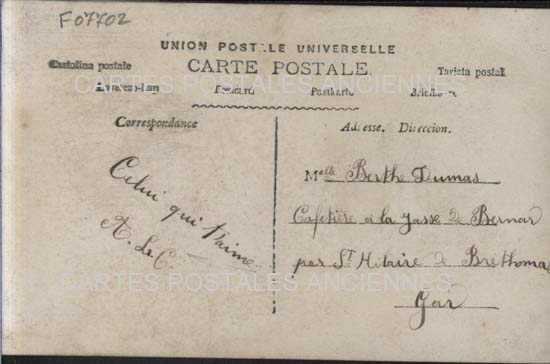 F07702
UNION POSTALE UNIVERSELLE
CARTE POSTALE.
Cartolina postale
Tarjeta postal
Levelezo-Lap
Postcard
Postkarte
Briefkaart
CARTES POSTALES ANCIENNES
Correspondance
Adresse. Direccion.
Celui qui t'aime
A. Le C.
Melle Berthe Dumas
Cafetière à la Jasse de Bernar
par St Hilaire de Brethomas
Gar
CARTES POSTALES ANCIENNES
CARTES POSTALES ANCIENNES